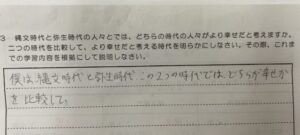 3 縄文時代と弥生時代の人々とでは、どちらの時代の人々がより幸せだと考えますか。
二つの時代を比較して、より幸せだと考える時代を明らかにしなさい。その際、これま
での学習内容を根拠にして説明しなさい。
僕は、縄文時代と弥生時代この2つの時代では、どちらが幸せか
を比較して、